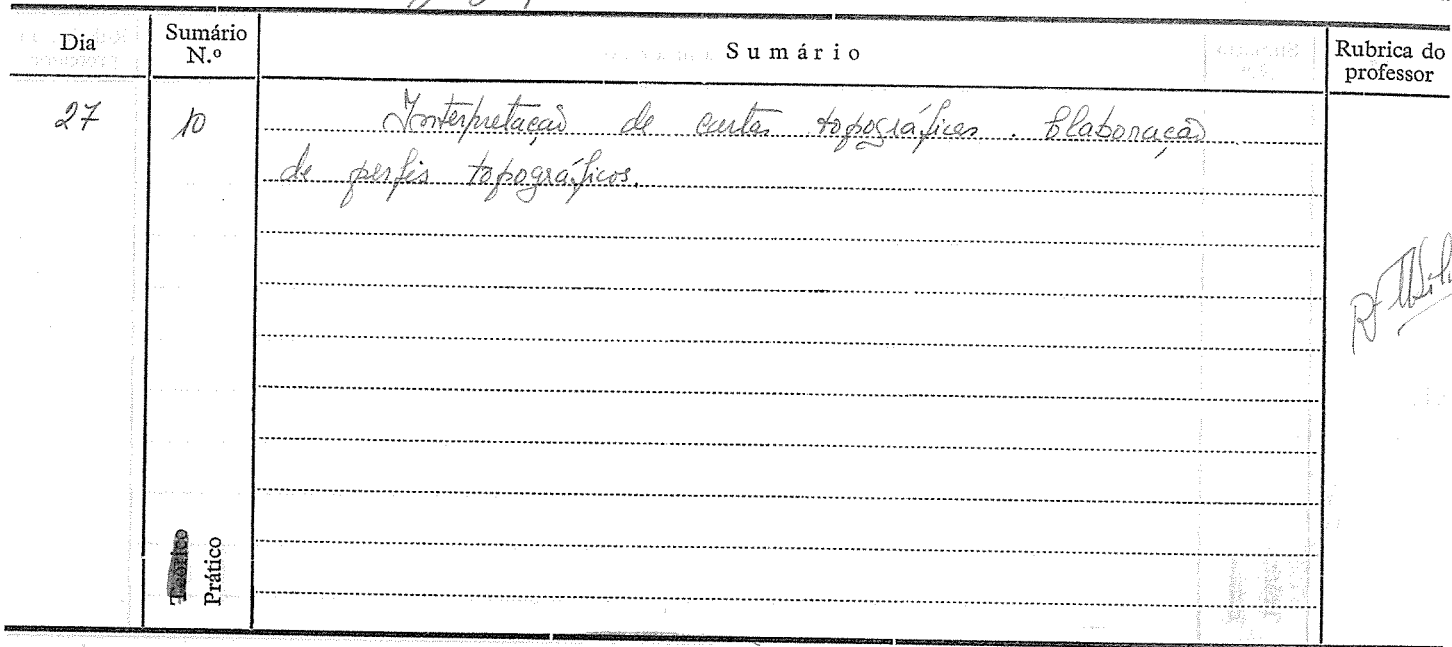 Dia
Sumário N.º
Sumário
Rubrica do professor
27
10
Interpretação de cartas topográficas. Elaboração
de perfis topográficos.
Teórico
Prático